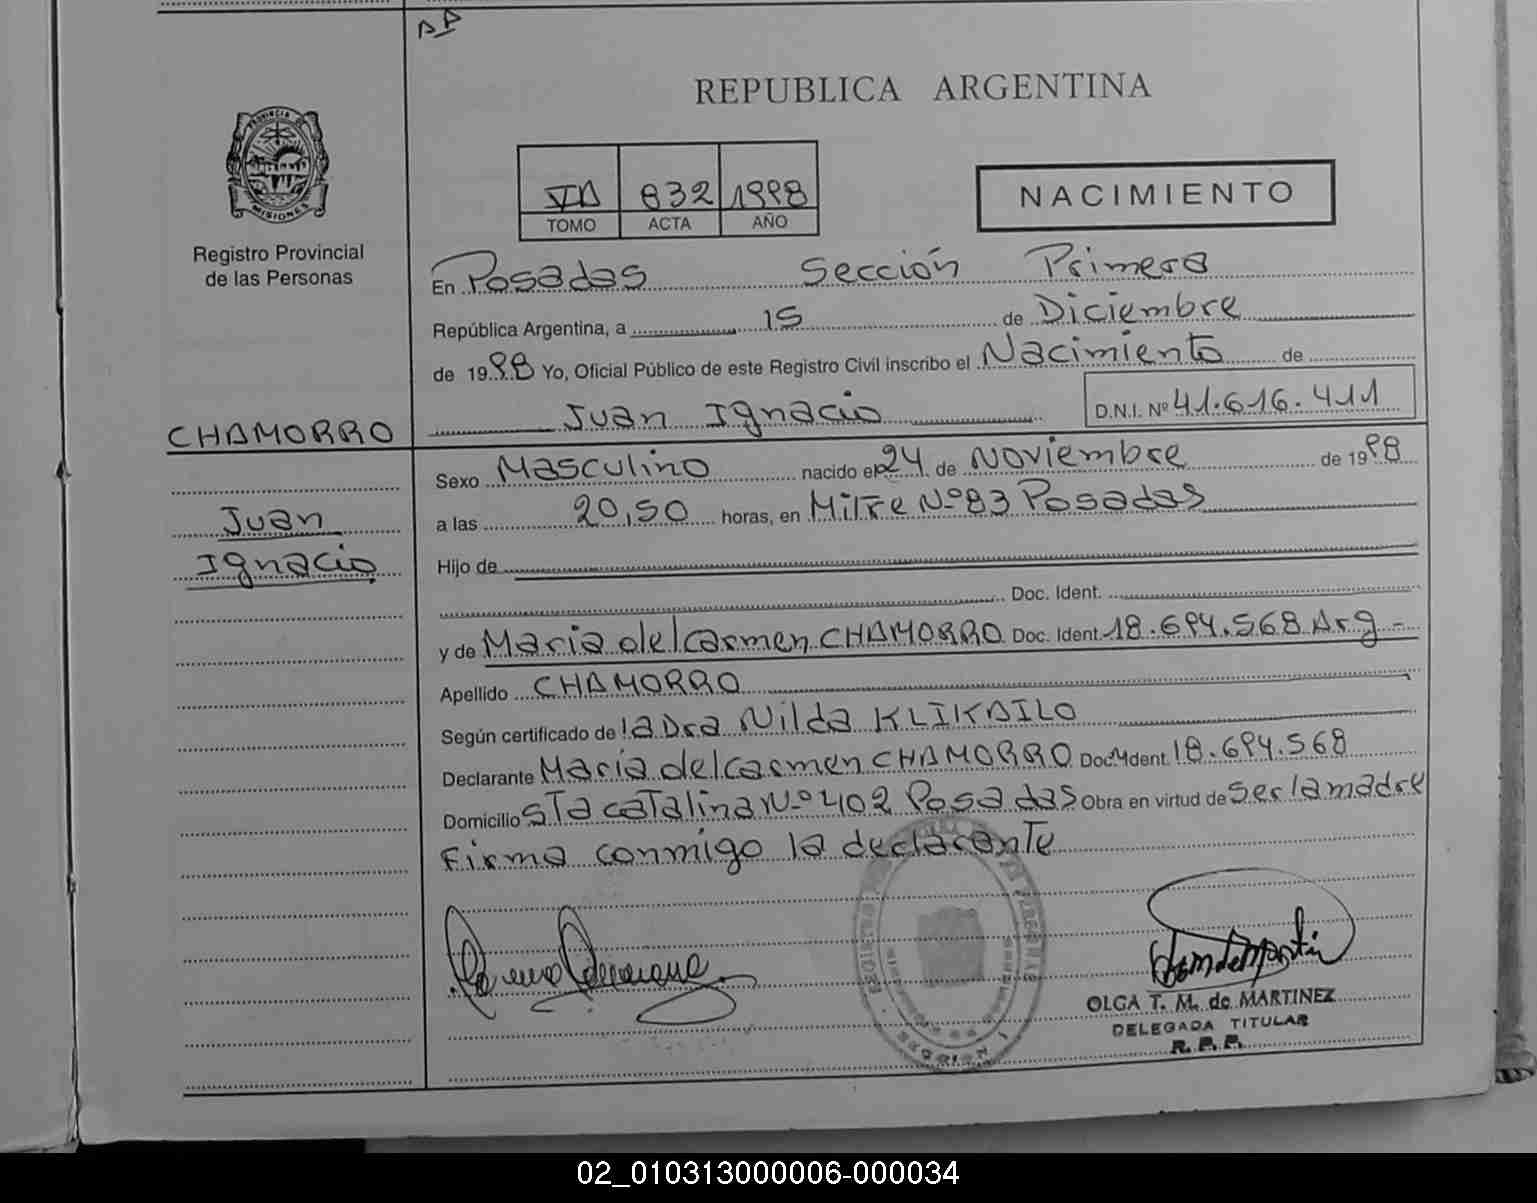 REPUBLICA ARGENTINA
PROVINCIA DE
MISIONES
Registro Provincial
de las Personas
832 1998
TOMO ACTA AÑO
NACIMIENTO
En Posadas Sección Primera
República Argentina, a 15 de Diciembre
de 1998 Yo, Oficial Público de este Registro Civil inscribo el Nacimiento de
Juan Ignacio D.N.I. Nº 41.616.411
CHAMORRO
Juan
Ignacio
Sexo Masculino nacido el 24 de Noviembre de 1998
a las 20,50 horas, en Mitre Nº 83 Posadas
Hijo de
Doc. Ident.
y de Maria del Carmen CHAMORRO Doc. Ident. 18.694.568 Arg -
Apellido CHAMORRO
Según certificado de la Dra Nilda KLIKAILO
Declarante Maria del Carmen CHAMORRO Doc. Ident. 18.694.568
Domicilio Sta Catalina Nº 402 Posadas Obra en virtud de ser la madre
Firma conmigo la declarante
OLGA T. M. de MARTINEZ
DELEGADA TITULAR
R. P. P.
02_010313000006-000034